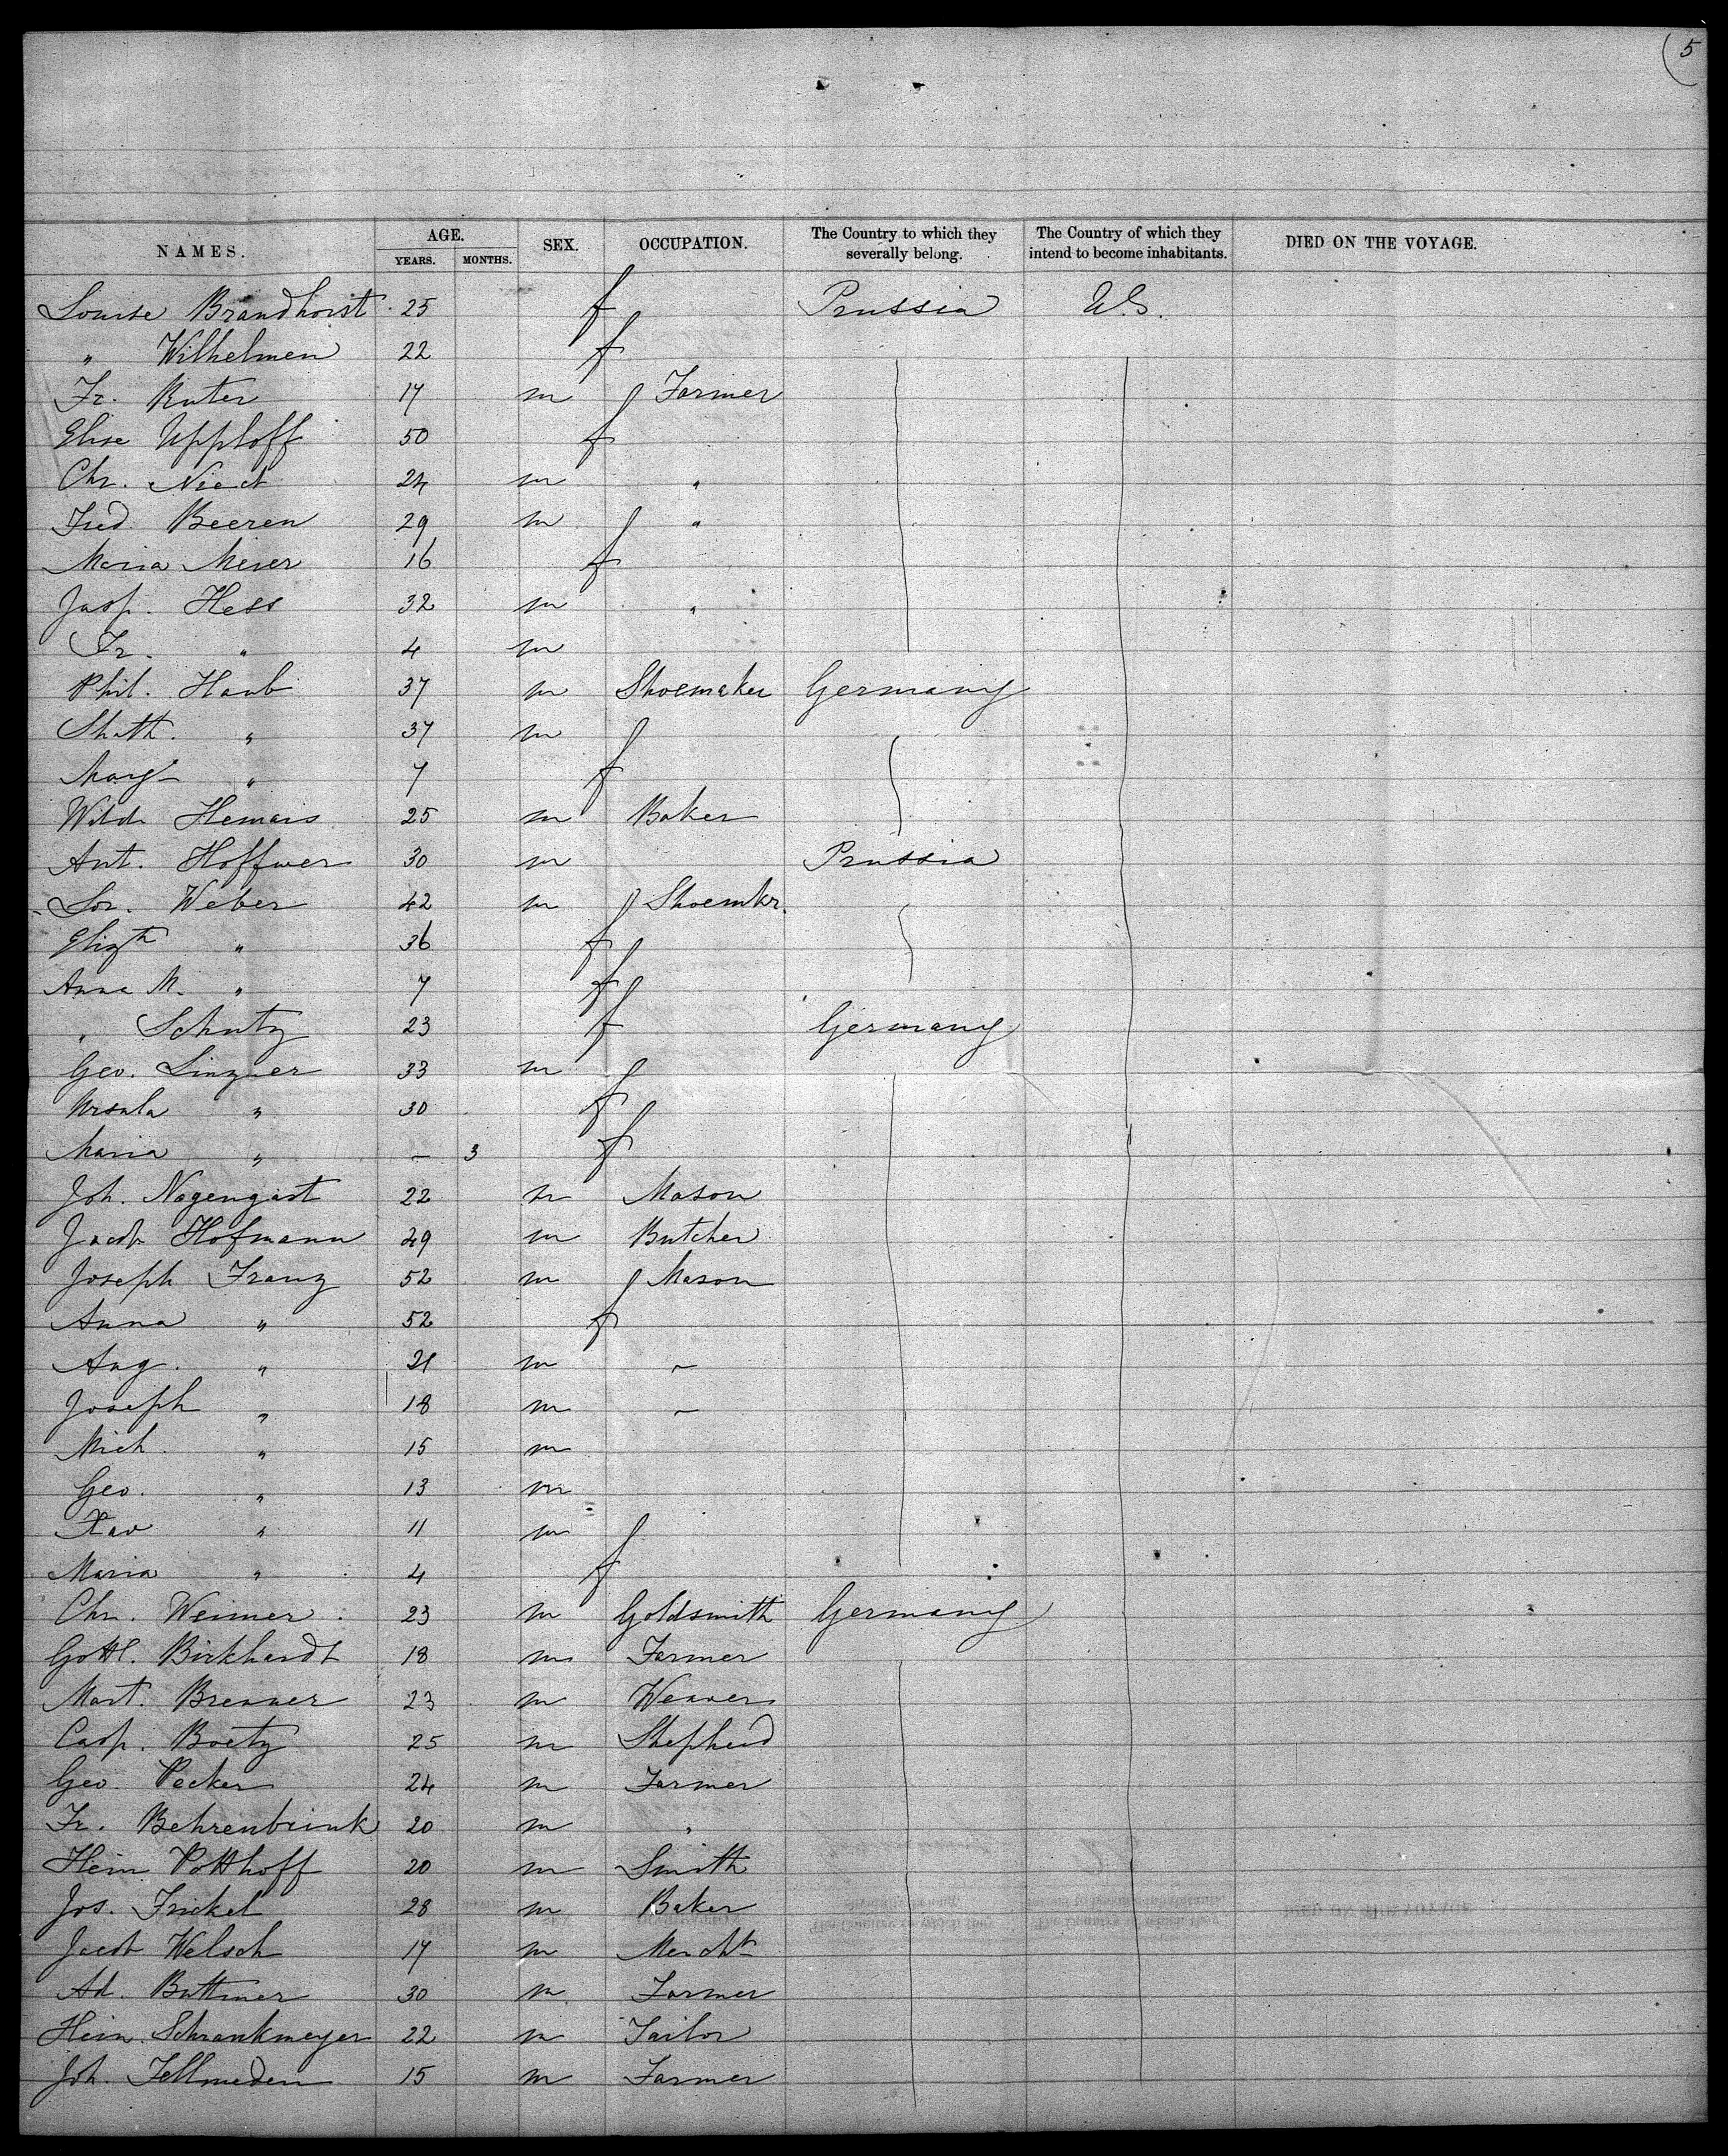 5
NAMES. AGE. YEARS. MONTHS. SEX. OCCUPATION. The Country to which they severally belong. The Country of which they intend to become inhabitants. DIED ON THE VOYAGE.
Louise Brandhorst 25 f Prussia U.S.
" Wilhelmen 22 f
Fr. Ruter 17 m Farmer
Elise Upploff 50 f
Chr. 24 m "
Fred. Beeren 29 m "
Maria Meier 16 f
Jasp. Hess 32 m "
Fr. " 4 m
Phil. Haub 37 m Shoemaker Germany
" 37 m
Marg " 7 f
Hemais 25 m Baker
Ant. Hoffwer 30 m Prussia
Lor. Weber 42 m Shoemkr.
Elizth " 36 f
Anna M. " 7 f
" Schutz 23 f Germany
Geo. Linzner 33 m
Ursula " 30 f
Maria " — 3 f
Joh. Nagengast 22 m Mason
Jacob Hofmann 49 m Butcher
Joseph Franz 52 m Mason
Anna " 52 f
Aug. " 21 m ~
Joseph " 18 m ~
Mich. " 15 m
Geo. " 13 m
Xav " 11 m
Maria " 4 f
Chr. Weimer 23 m Goldsmith Germany
Gottl. Birkhardt 18 m Farmer
Mart. Brenner 23 m Weaver
Casp. Boetz 25 m Shepherd
Geo. Pecker 24 m Farmer
Fr. Behrenbrink 20 m "
Hein Potthoff 20 m Smith
Jos. Frickel 28 m Baker
Jacob Welsch 17 m Mercht
Ad. Buttmer 30 m Farmer
Hein. Schrankmeyer 22 m Tailor
Joh. Fellmeden 15 m Farmer